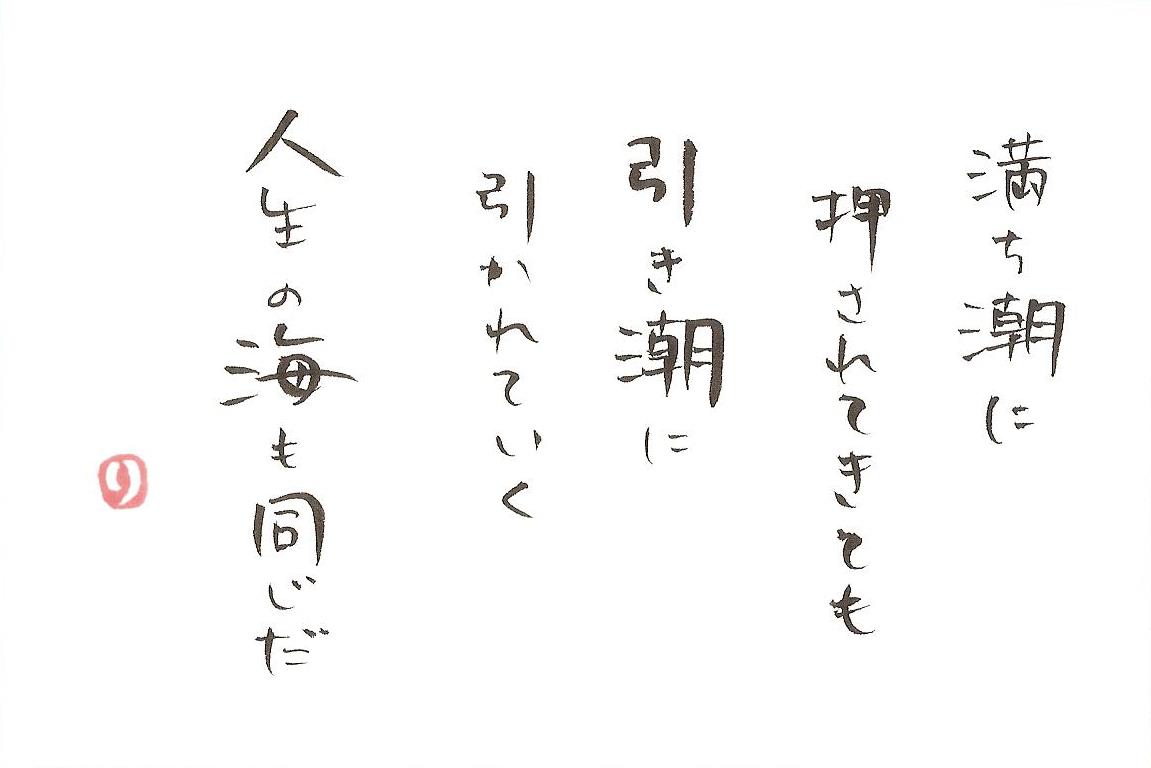 満ち潮に
押されてきても
引き潮に
引かれていく
人生の海も同じだ
の